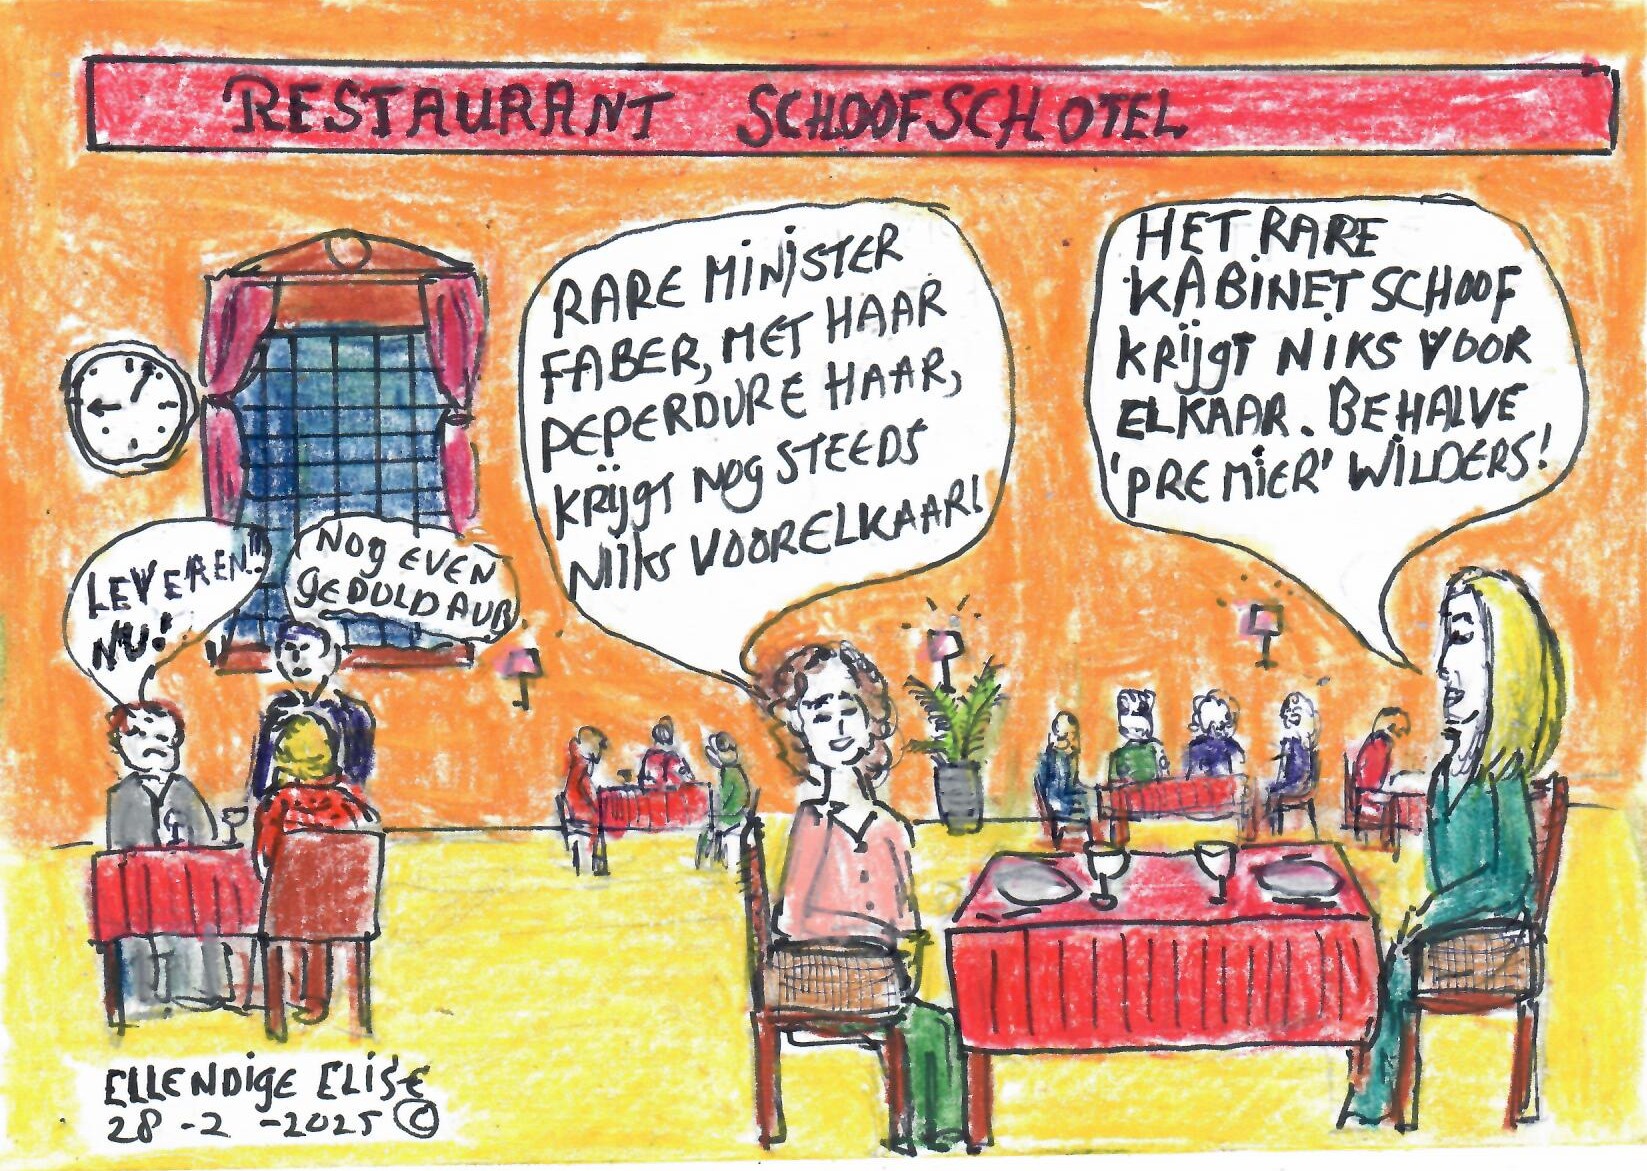 RESTAURANT SCHOOFSCHOTEL
RARE MINISTER
FABER, MET HAAR
PEPERDURE HAAR,
KRIJGT NOG STEEDS
NIKS VOORELKAAR!
HET RARE
KABINET SCHOOF
KRIJGT NIKS VOOR
ELKAAR. BEHALVE
'PREMIER' WILDERS!
LEVEREN!!
NU!
NOG EVEN
GEDULD AUB
ELLENDIGE ELISE
28-2-2025 ©